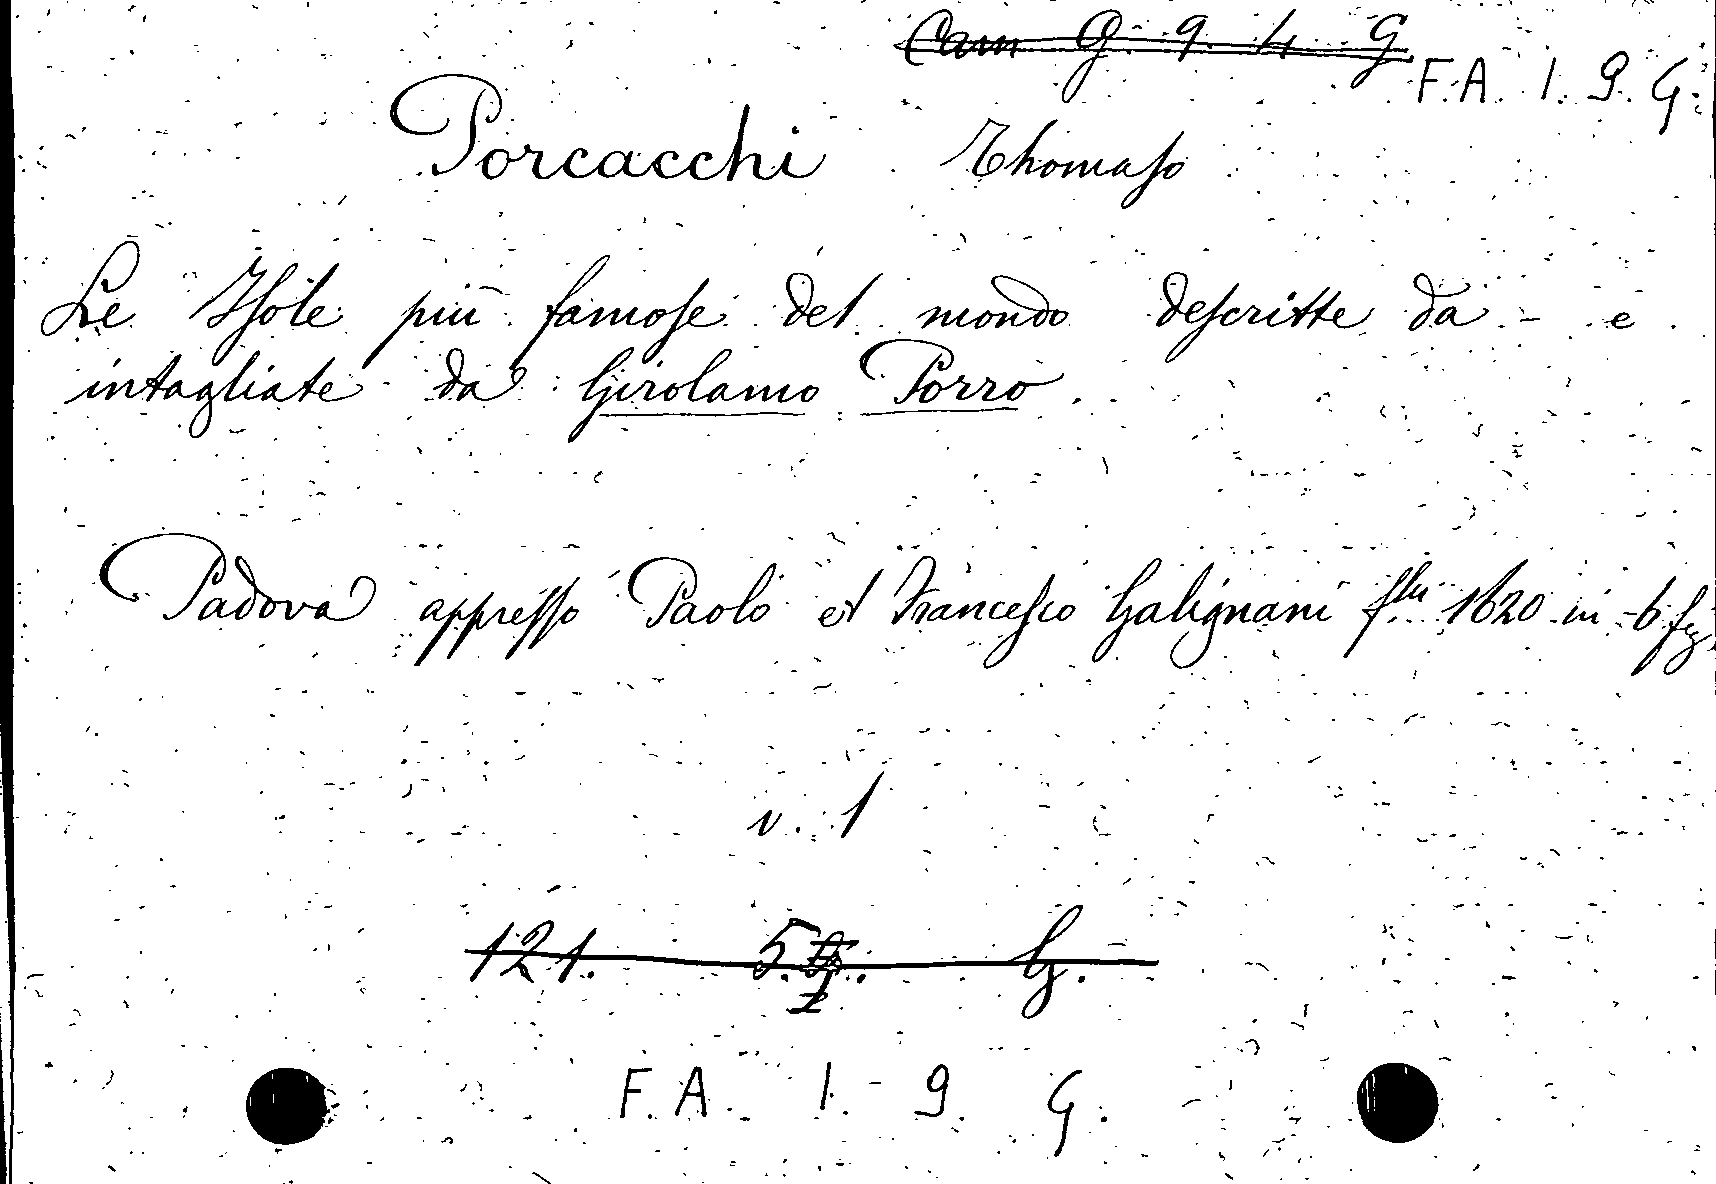 Cam G. 9. 4. G.
F.A. 1. 9. G.
Porcacchi Thomaso
Le Isole più famose del mondo descritte da - e
intagliate da Girolamo Porro.
Padova appresso Paolo et Francesco Galignani f.lli 1620 in-6 fig.
v. 1
121. 5. G.
F.A. 1. 9. G.